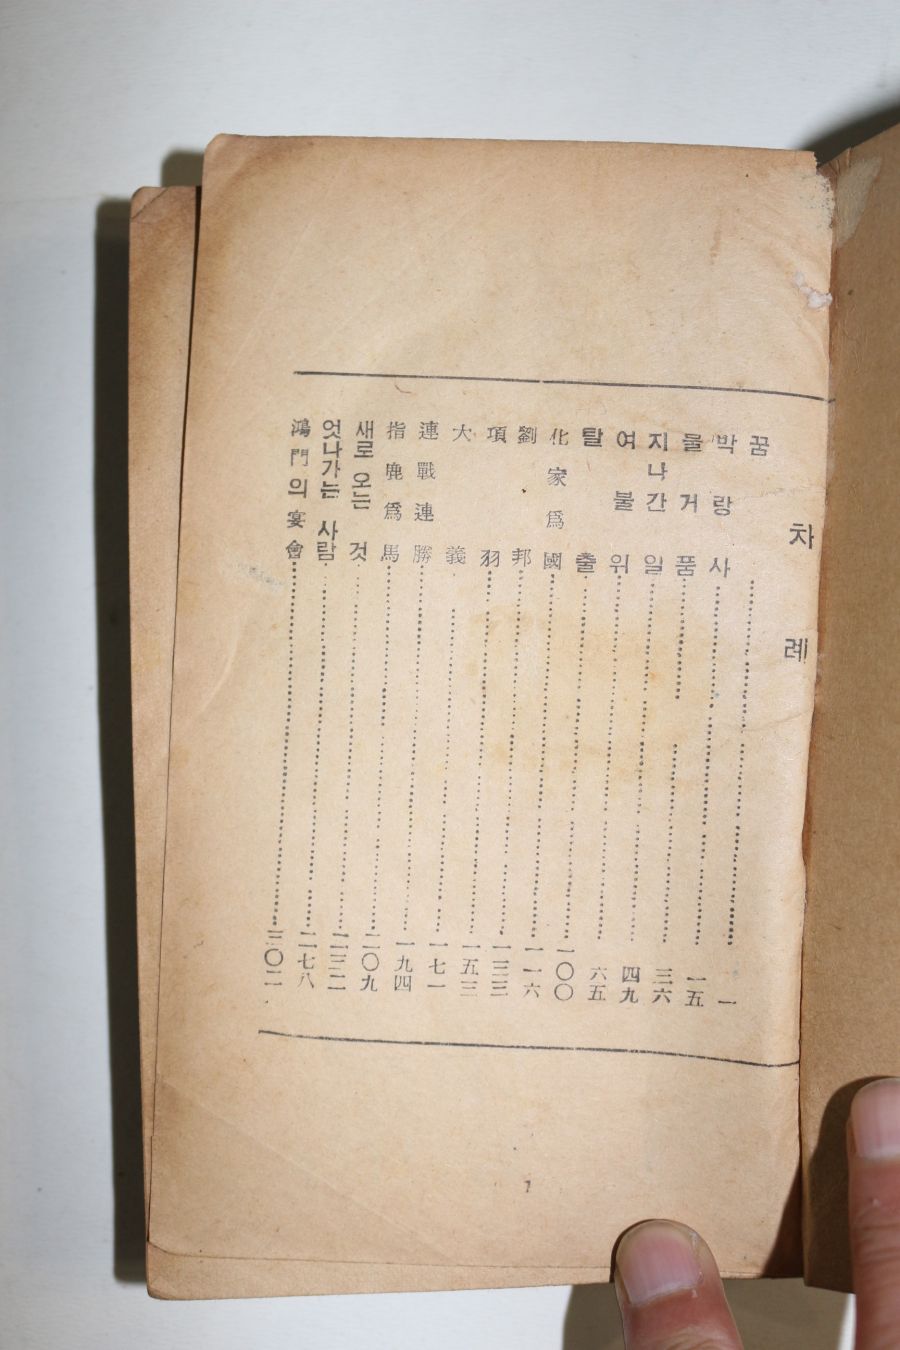 차례
꿈 一
박랑사 一五
물거품 三六
지나간 일 四九
여불위 六五
탈출 一〇〇
化家爲國 一一六
劉邦 一三三
項羽 一五三
大義 一七一
連戰連勝 一九四
指鹿爲馬 二〇九
새로 오는 것 二三二
엇나가는 사람 二七八
鴻門의 宴會 三〇二
1